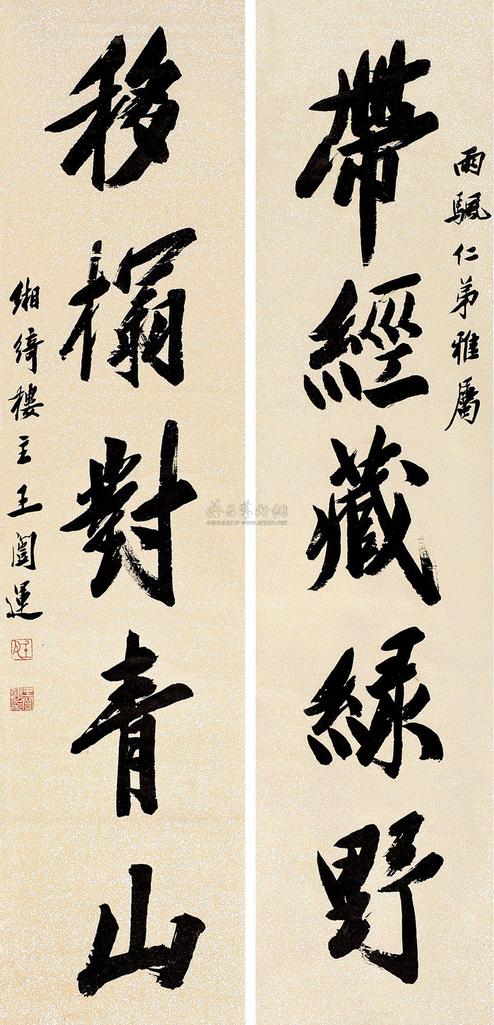 帶經藏綠野
雨颿仁弟雅屬
移榻對青山
緗綺樓主王闓運
www.artron.net